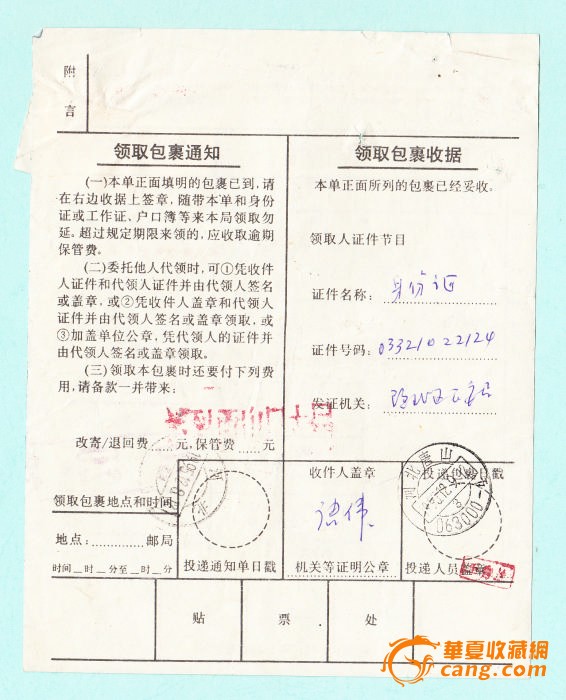 附
言
领取包裹通知
(一)本单正面填明的包裹已到,请
在右边收据上签章,随带本单和身份
证或工作证、户口簿等来本局领取勿
延。超过规定期限来领的,应收取逾期
保管费。
(二)委托他人代领时,可①凭收件
人证件和代领人证件并由代领人签名
或盖章,或②凭收件人盖章和代领人
证件并由代领人签名或盖章领取,或
③加盖单位公章,凭代领人的证件并
由代领人签名或盖章领取。
(三)领取本包裹时还要付下列费
用,请备款一并带来:
改寄/退回费......元,保管费......元
领取包裹收据
本单正面所列的包裹已经妥收。
领取人证件节目
证件名称: 身份证
证件号码: 03321022124
发证机关:
领取包裹地点和时间
地点:........邮局
时间__时__分至__时__分
投递通知单日戳
收件人盖章
机关等证明公章
投递包裹日戳
河北唐山
063000
投递人员盖章
贴
票
处
華夏收藏網
cang.com